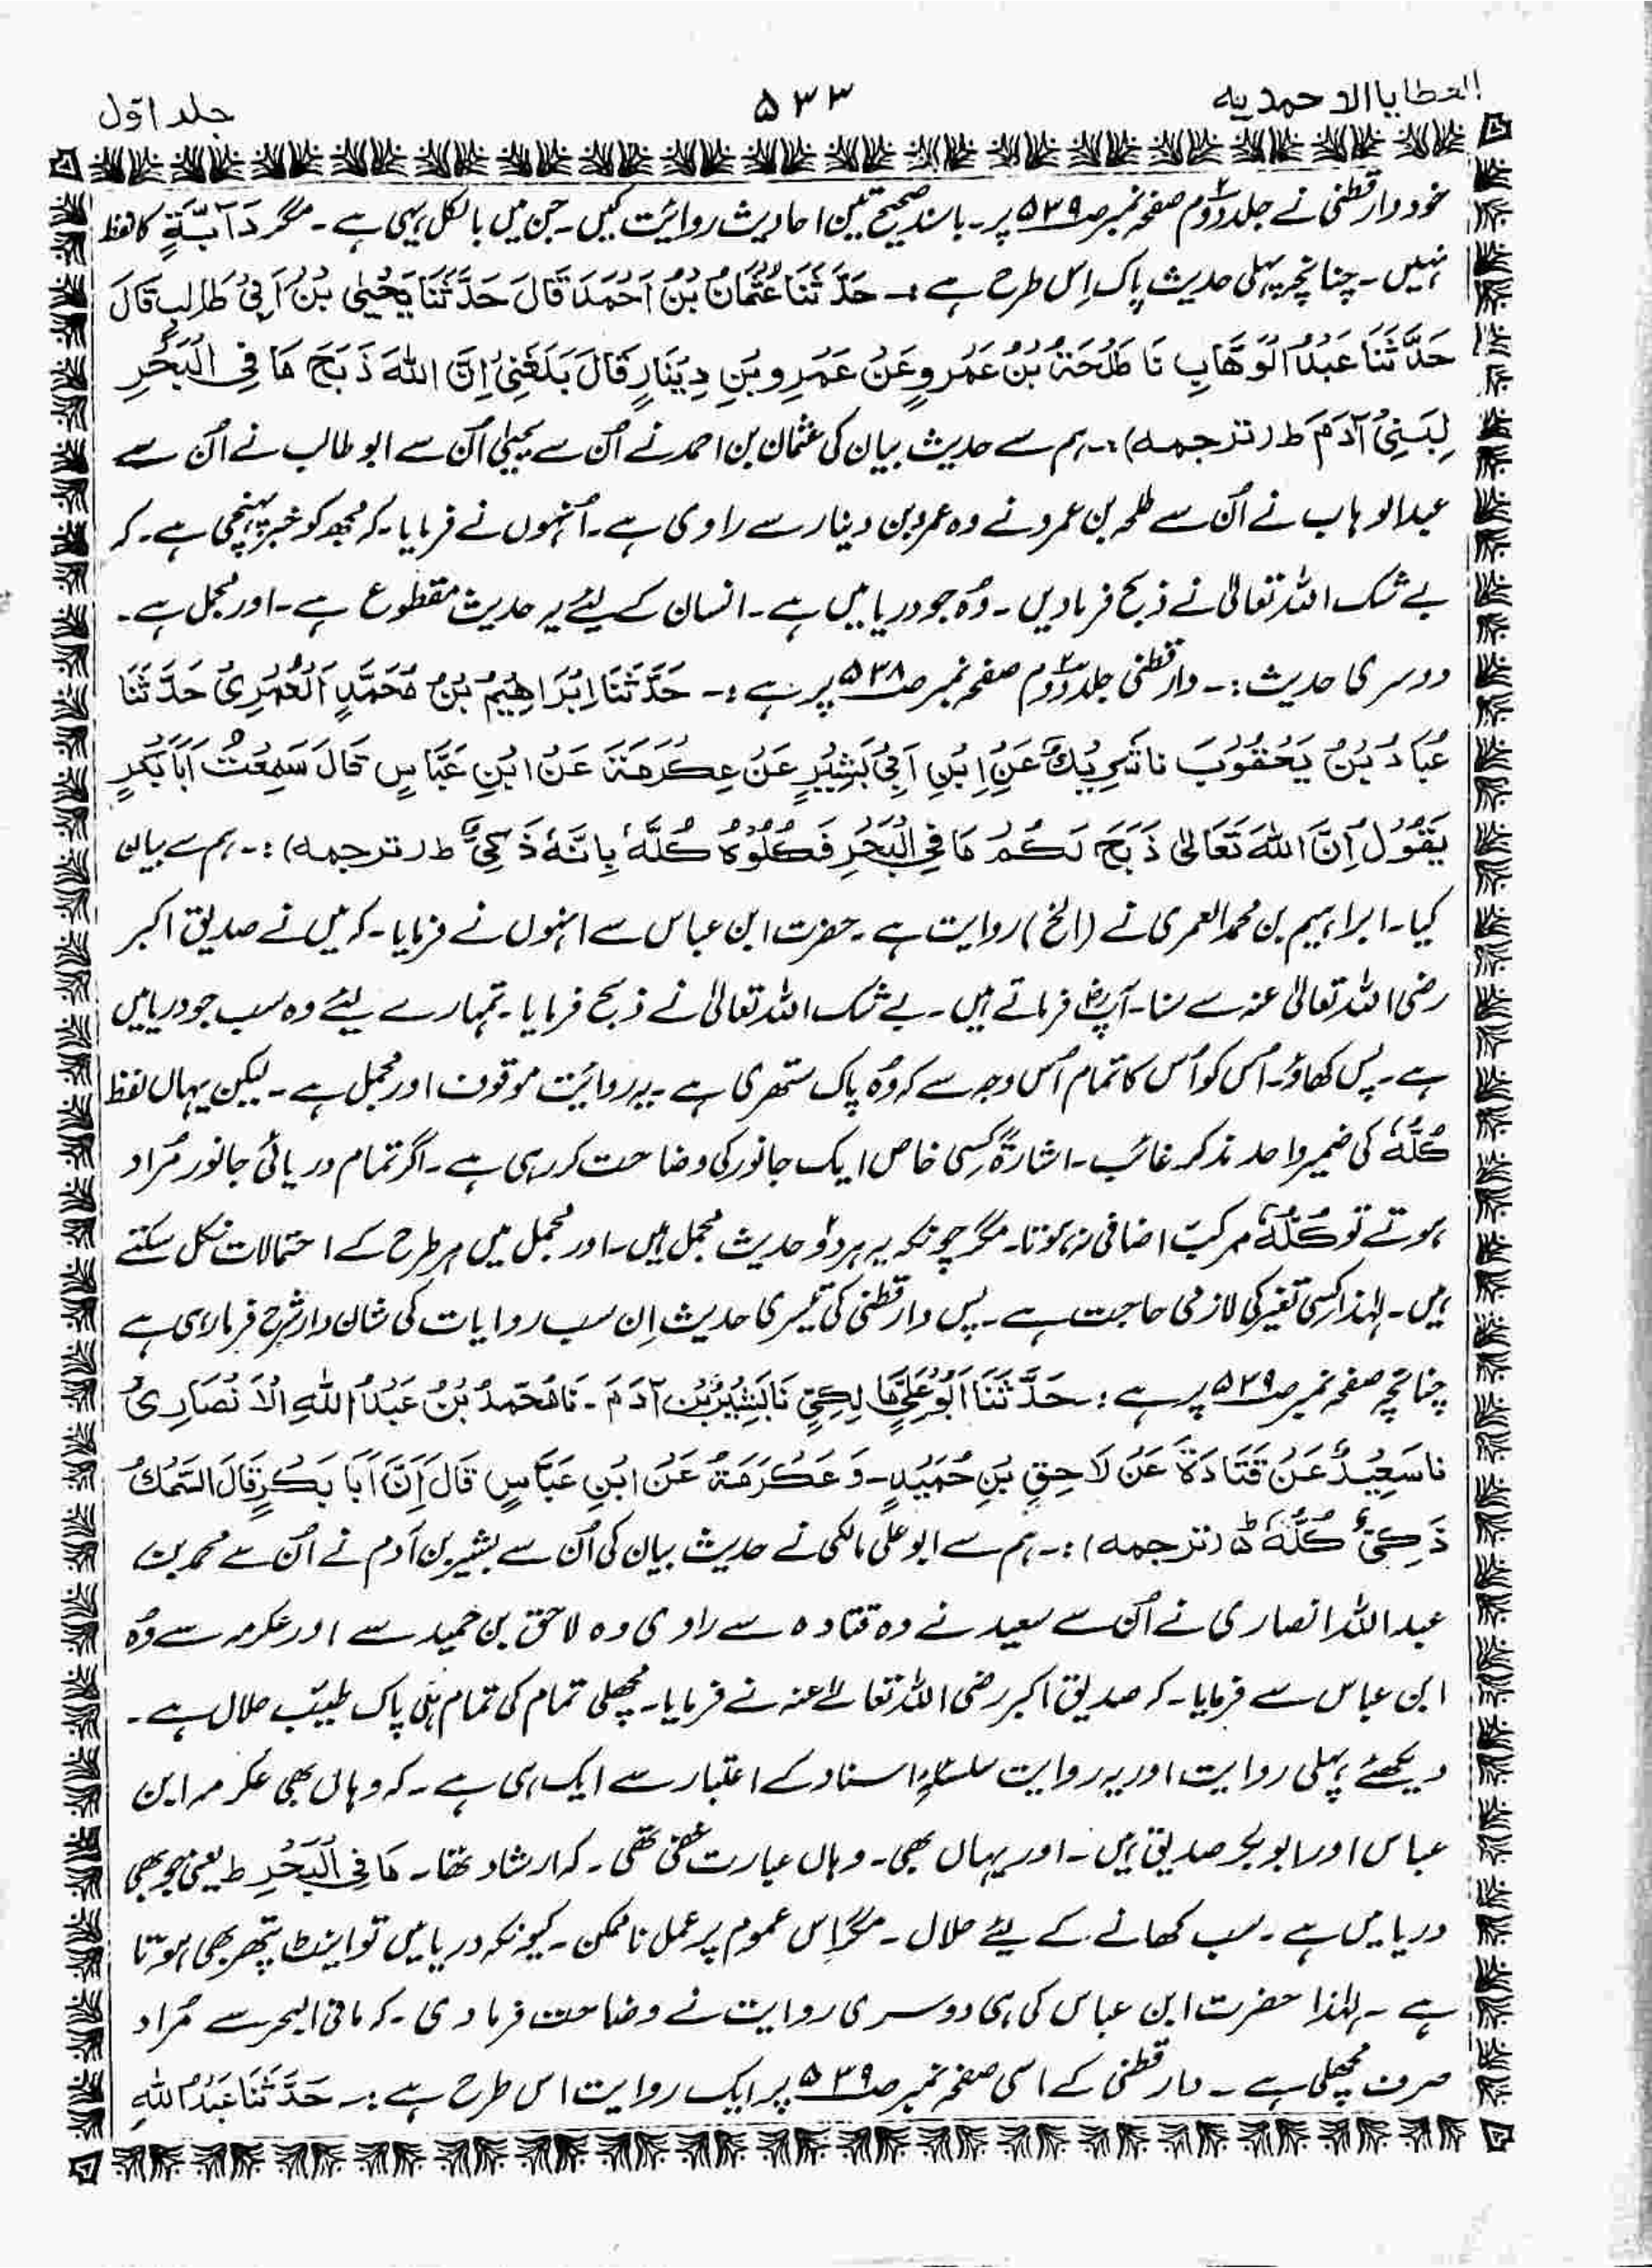 العطایا الاحمدیہ
۵۳۳
جلد اوّل
خود دار قطنی نے جلد دوم صفحہ نمبر صـ۵۳۹ پر۔ باسند صحیح تین احادیث روائت کیں۔ جن میں بالکل یہی ہے۔ مگر دَآبَّۃٍ کا لفظ
نہیں۔ چنانچہ پہلی حدیث پاک اِس طرح ہے :۔ حَدَّثَنَا عُثْمَانُ بْنُ اَحْمَدَ قَالَ حَدَّثَنَا یَحْیٰی بْنُ اَبِیْ طَالِبٍ قَالَ
حَدَّثَنَا عَبْدُ الْوَھَّابِ نَا طَلْحَۃُ بْنُ عَمْرٍو عَنْ عَمْرِو بْنِ دِیْنَارٍ قَالَ بَلَغَنِیْ اِنَّ اللّٰہَ ذَبَحَ مَا فِی الْبَحْرِ
لِبَنِیْ آدَمَ ط (ترجمہ) :۔ ہم سے حدیث بیان کی عثمان بن احمد نے اُن سے یحییٰ اُن سے ابو طالب نے اُن سے
عبدالوہاب نے اُن سے طلحہ بن عمرو نے وہ عمرو بن دینار سے راوی ہے۔ اُنہوں نے فرمایا۔ کہ مجھ کو خبر پہنچی ہے۔ کہ
بے شک اللہ تعالیٰ نے ذبح فرما دیں۔ وُہ جو دریا میں ہے۔ انسان کے لیئے یہ حدیث مقطوع ہے۔ اور مجمل ہے۔
دوسری حدیث :۔ دار قطنی جلد دوم صفحہ نمبر صـ۵۳۸ پر ہے :۔ حَدَّثَنَا اِبْرَاھِیْمُ بْنُ مُحَمَّدٍ الْعُمَرِیُ حَدَّثَنَا
عُبَادُ بْنُ یَعْقُوْبَ نَا شَرِیْكٌ عَنِ اِبْنِ اَبِیْ بَشِیْرٍ عَنْ عِکْرَمَۃَ عَنْ ابْنِ عَبَّاسٍ قَالَ سَمِعْتُ اَبَا بَکْرٍ
یَقُوْلُ اِنَّ اللّٰہَ تَعَالٰی ذَبَحَ لَکُمْ مَا فِی الْبَحْرِ فَکُلُوْہُ کُلَّہٗ بِاَنَّہٗ ذَکِیٌّ ط (ترجمہ) :۔ ہم سے بیان
کیا۔ ابراہیم بن محمد العمری نے (الخ) روایت ہے۔ حضرت ابن عباس سے انہوں نے فرمایا۔ کہ میں نے صدیق اکبر
رضی اللہ تعالیٰ عنہ سے سنا۔ آپؓ فرماتے ہیں۔ بے شک اللہ تعالیٰ نے ذبح فرمایا۔ تمہارے لیئے وہ سب جو دریا میں
ہے۔ پس کھاؤ۔ اُس کو اُس کا تمام اُس وجہ سے کہ وُہ پاک ستھری ہے۔ یہ روائت موقوف اور مجمل ہے۔ لیکن یہاں لفظ
کُلَّہٗ کی ضمیر واحد مذکر غائب۔ اشارۃً کسِی خاص ایک جانور کی وضاحت کر رہی ہے۔ اگر تمام دریائی جانور مُراد
ہوتے تو کُلَّہٗ مرکب اضافی نہ ہوتا۔ مگر چونکہ یہ ہر دو حدیث مجمل ہیں۔ اور مجمل میں ہر طرح کے احتمالات نکل سکتے
ہیں۔ لہٰذا کسی تغیر کی لازمی حاجت ہے۔ پس دار قطنی کی تیسری حدیث اِن سب روایات کی شان دار شرح فرما رہی ہے
چنانچہ صفحہ نمبر صـ۵۳۹ پر ہے :۔ حَدَّثَنَا اَبُوْ عَلِیٍّ مَا لِکِیٍّ نَا بَشِیْرُ بْنُ آدَمَ۔ نَا مُحَمَّدُ بْنُ عَبْدُ اللّٰہِ الْاَنْصَارِیُ
نا سَعِیْدٌ عَنْ قَتَادَۃَ عَنْ لَاحِقِ بْنِ حُمَیْدٍ۔ وَ عَکْرَمَۃُ عَنْ ابْنِ عَبَّاسٍ قَالَ اِنَّ اَبَا بَکْرٍ قَالَ السَّمْكُ
ذَکِیٌّ کُلُّہٗ ط (ترجمہ) :۔ ہم سے ابو علی مالکی نے حدیث بیان کی اُن سے بشیر بن آدم نے اُن سے محمد بن
عبداللہ انصاری نے اُن سے سعید نے وہ قتادہ سے راوی وہ لاحق بن حمید سے اور عکرمہ سے وُہ
ابن عباس سے فرمایا۔ کہ صدیق اکبر رضی اللہ تعالےٰ عنہ نے فرمایا۔ مچھلی تمام کی تمام ہی پاک طیّب حلال ہے۔
دیکھئے پہلی روایت اور یہ روایت سلسلۂِ اسناد کے اعتبار سے ایک ہی ہے۔ کہ وہاں بھی عکرمہ ابن
عباس اور ابو بکر صدیق ہیں۔ اور یہاں بھی۔ وہاں عبارت مخفی تھی۔ کہ ارشاد تھا۔ مَا فِی الْبَحْرِ ط یعنی جو بھی
دریا میں ہے۔ سب کھانے کے لیئے حلال۔ مگر اِس عموم پر عمل ناممکن۔ کیونکہ دریا میں تو اینٹ پتھر بھی ہوتا
ہے۔ لہٰذا حضرت ابن عباس کی ہی دوسری روایت نے وضاحت فرما دی۔ کہ مافی البحر سے مُراد
صرف مچھلی ہے۔ دار قطنی کے اسی صفحہ نمبر صـ۵۳۹ پر ایک روایت اس طرح ہے :۔ حَدَّثَنَا عَبْدُ اللّٰہِ